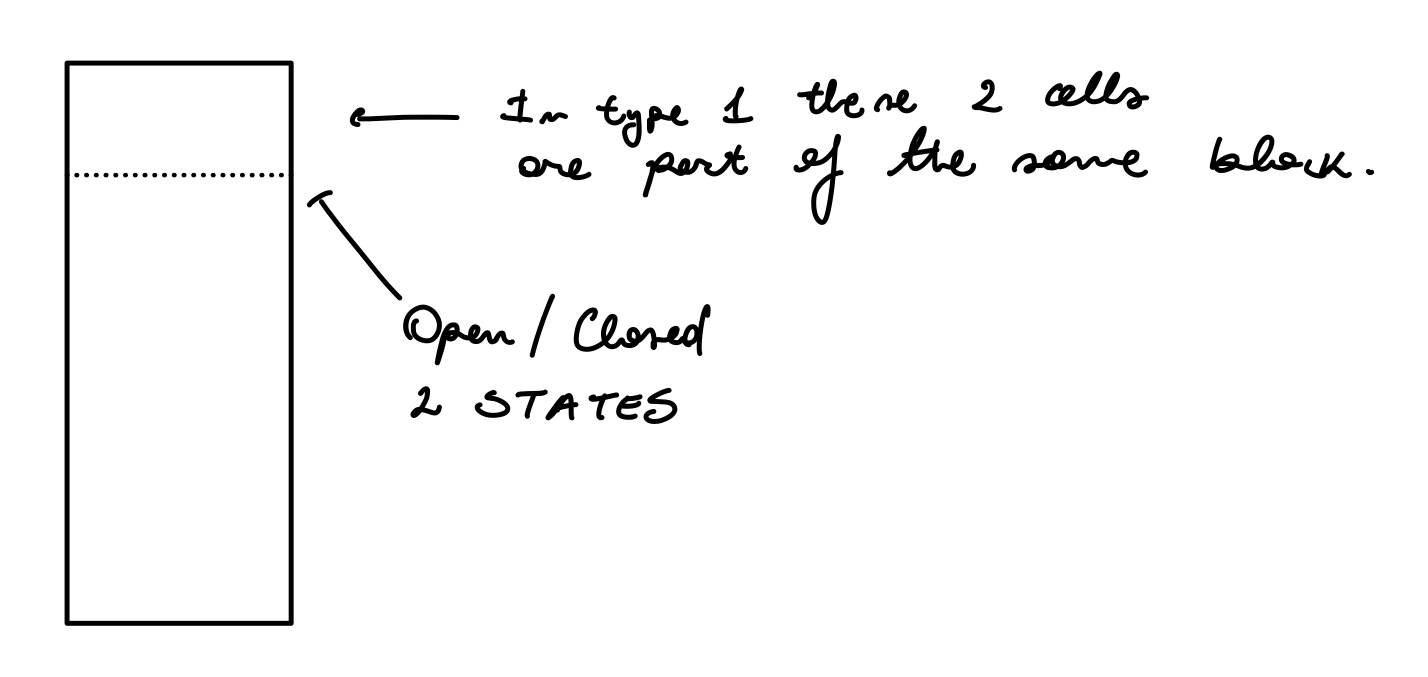 In type 1 these 2 cells
are part of the same block.
Open / Closed
2 STATES